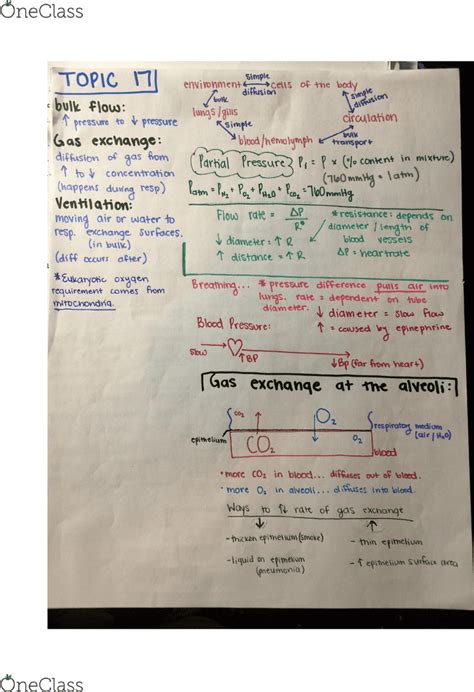 OneClass
TOPIC 17
bulk flow:
↑ pressure to ↓ pressure
Gas exchange:
diffusion of gas from
↑ to ↓ concentration
(happens during resp)
Ventilation:
moving air or water to
resp. exchange surfaces.
(in bulk)
(diff occurs after)
*Eukaryotic oxygen
requirement comes from
mitochondria.
environment ↔ cells of the body
simple
diffusion
bulk
simple
diffusion
lungs/gills
circulation
simple
bulk
transport
blood/hemolymph
Partial Pressure: P₁ = P x (% content in mixture)
(760 mmHg = 1atm)
Patm = PN₂ + PO₂ + PH₂O + PCO₂ = 760mmHg
Flow rate = ΔP
R*
*resistance: depends on
diameter / length of
blood vessels
↓ diameter = ↑ R
↑ distance = ↑ R
ΔP = heartrate
Breathing... * pressure difference pulls air into
lungs. rate = dependent on tube
diameter. ↓ diameter = slow flow
Blood Pressure:
↑ = caused by epinephrine
slow
↑BP
↓Bp (far from heart)
Gas exchange at the alveoli:
CO₂
O₂
respiratory medium
(air/H₂O)
epithelium
CO₂
O₂
blood
•more CO₂ in blood... diffuses out of blood.
•more O₂ in alveoli... diffuses into blood.
Ways to ↑↓ rate of gas exchange
↓
↑
-thicken epithelium (smoke)
- thin epithelium
-liquid on epithelium
(pneumonia)
- ↑ epithelium surface area
OneClass